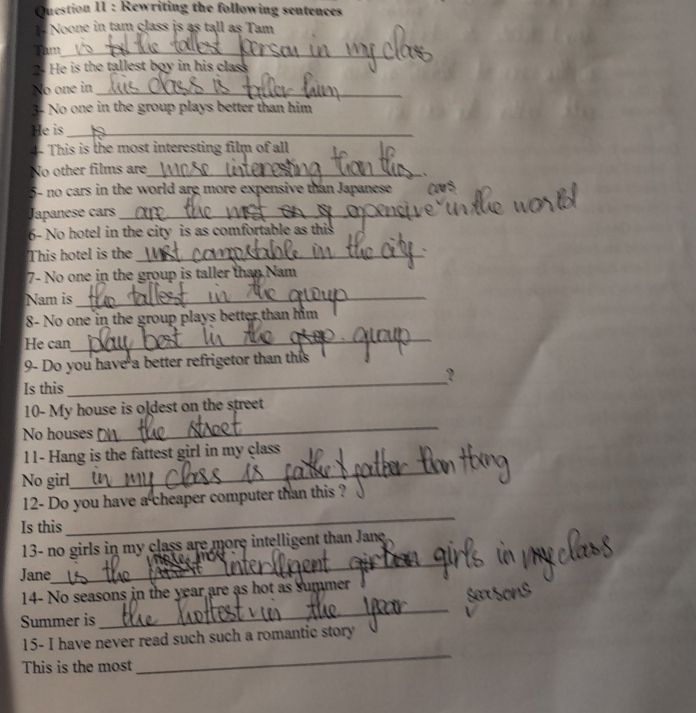 Question II : Rewriting the following sentences
1- Noone in tam class is as tall as Tam
Tam is the tallest person in my class
2- He is the tallest boy in his class
No one in his class is taller him
3- No one in the group plays better than him
He is
4- This is the most interesting film of all
No other films are more interesting than this.
5- no cars in the world are more expensive than Japanese
cars
Japanese cars are the most expensive in the world
6- No hotel in the city is as comfortable as this
This hotel is the most comfortable in the city.
7- No one in the group is taller than Nam
Nam is the tallest in the group
8- No one in the group plays better than him
He can play best in the group
9- Do you have a better refrigetor than this
Is this ?
10- My house is oldest on the street
No houses on the street
11- Hang is the fattest girl in my class
No girl in my class is fatter than Hang
12- Do you have a cheaper computer than this ?
Is this
13- no girls in my class are more intelligent than Jane
Jane is the most girls in my class
14- No seasons in the year are as hot as summer
seasons
Summer is the hottest in the year
15- I have never read such such a romantic story
This is the most